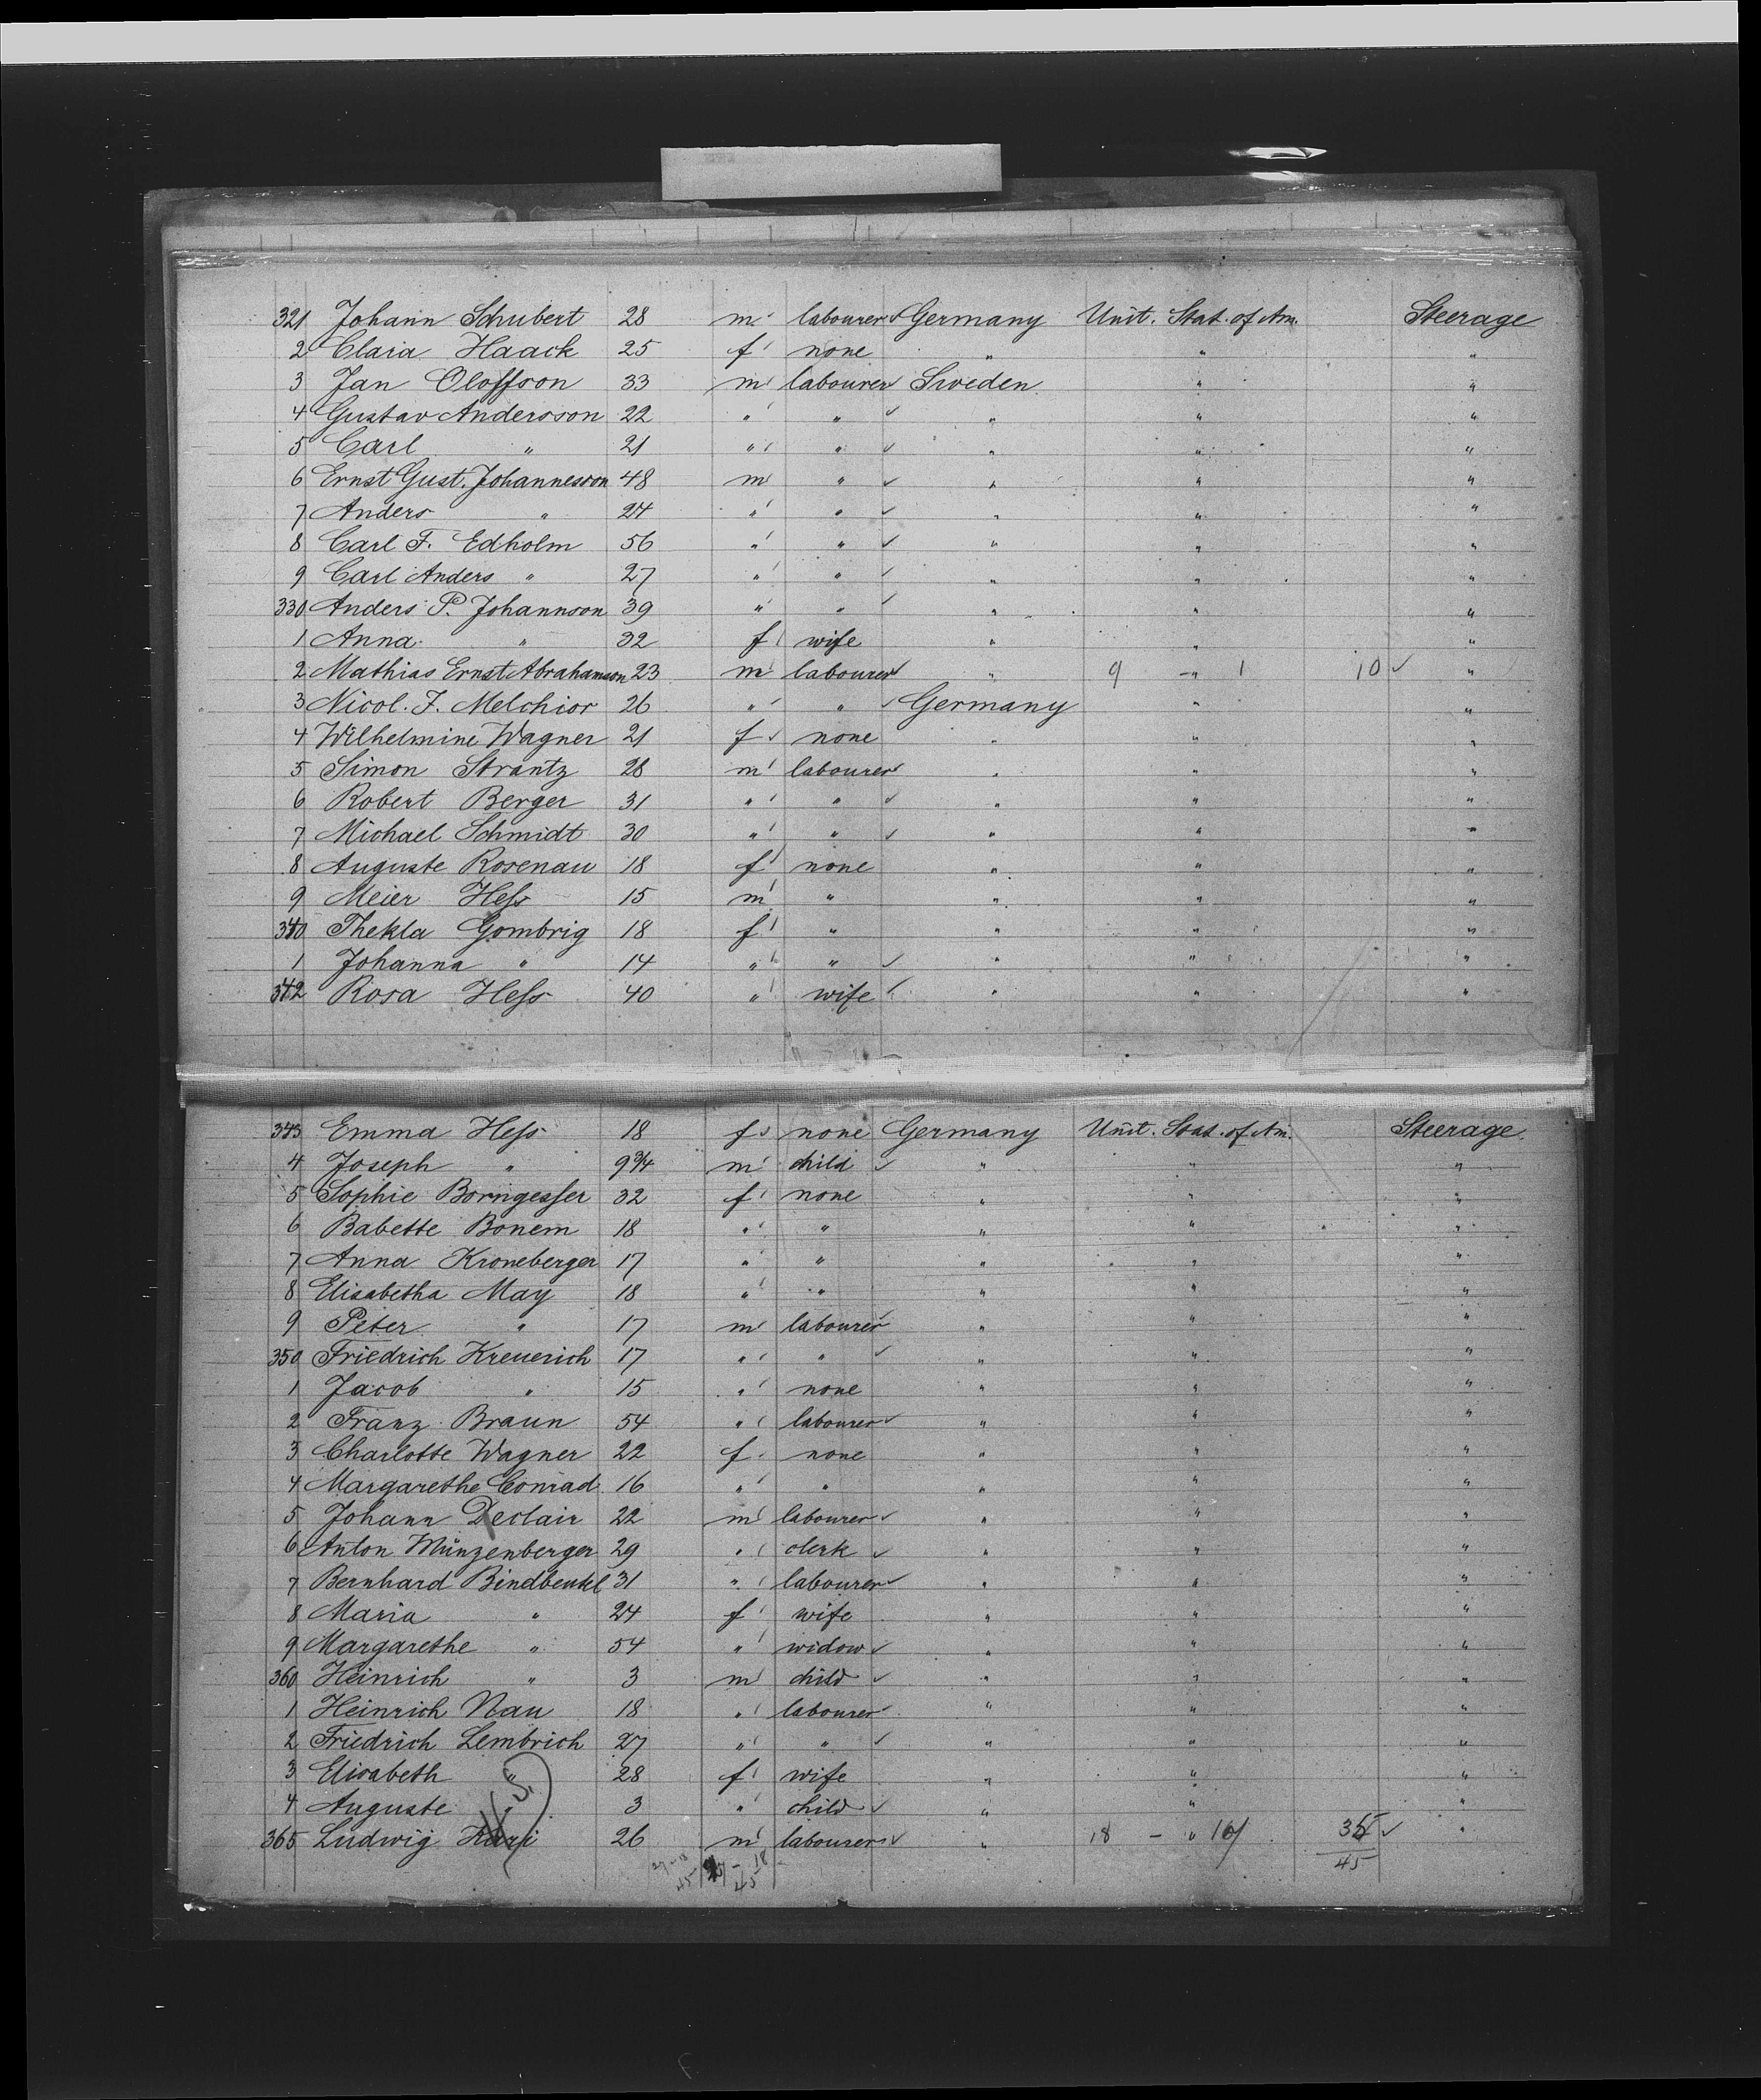 321 Johann Schubert 28 m labourer Germany Unit. Stat. of Am. Steerage
2 Clara Haack 25 f none " " "
3 Jan Oloffson 33 m labourer Sweden " "
4 Gustav Andersson 22 " " " " "
5 Carl " 21 " " " " "
6 Ernst Gust. Johannesson 48 m " " " "
7 Anders " 24 " " " " "
8 Carl F. Edholm 56 " " " " "
9 Carl Anders " 27 " " " " "
330 Anders P. Johannson 39 " " " " "
1 Anna " 32 f wife " " "
2 Mathias Ernst Abrahamson 23 m labourer " 9 - " 1 10 "
3 Nicol. J. Melchior 26 " " Germany " "
4 Wilhelmine Wagner 21 f none " " "
5 Simon Strantz 28 m labourer " " "
6 Robert Berger 31 " " " " "
7 Michael Schmidt 30 " " " " "
8 Auguste Rosenau 18 f none " " "
9 Meier Hess 15 m " " " "
340 Thekla Gombrig 18 f " " " "
1 Johanna " 14 " " " " "
342 Rosa Hess 40 " wife " " "
343 Emma Hess 18 f none Germany Unit. Stat. of Am. Steerage
4 Joseph " 9 3/4 m child " " "
5 Sophie Borngesser 32 f none " " "
6 Babette Bonem 18 " " " " "
7 Anna Kroneberger 17 " " " " "
8 Elisabetha May 18 " " " " "
9 Peter " 17 m labourer " " "
350 Friedrich Kreuerich 17 " " " " "
1 Jacob " 15 " none " " "
2 Franz Braun 54 " labourer " " "
3 Charlotte Wagner 22 f none " " "
4 Margarethe Conrad 16 " " " " "
5 Johann Declair 22 m labourer " " "
6 Anton Münzenberger 29 " clerk " " "
7 Bernhard Bindbeukl 31 " labourer " " "
8 Maria " 24 f wife " " "
9 Margarethe " 54 " widow " " "
360 Heinrich " 3 m child " " "
1 Heinrich Nau 18 " labourer " " "
2 Friedrich Lembrich 27 " " " " "
3 Elisabeth " 28 f wife " " "
4 Auguste " 3 " child " " "
365 Ludwig 26 m labourer " 18 - " 35 "
45 45 18 45